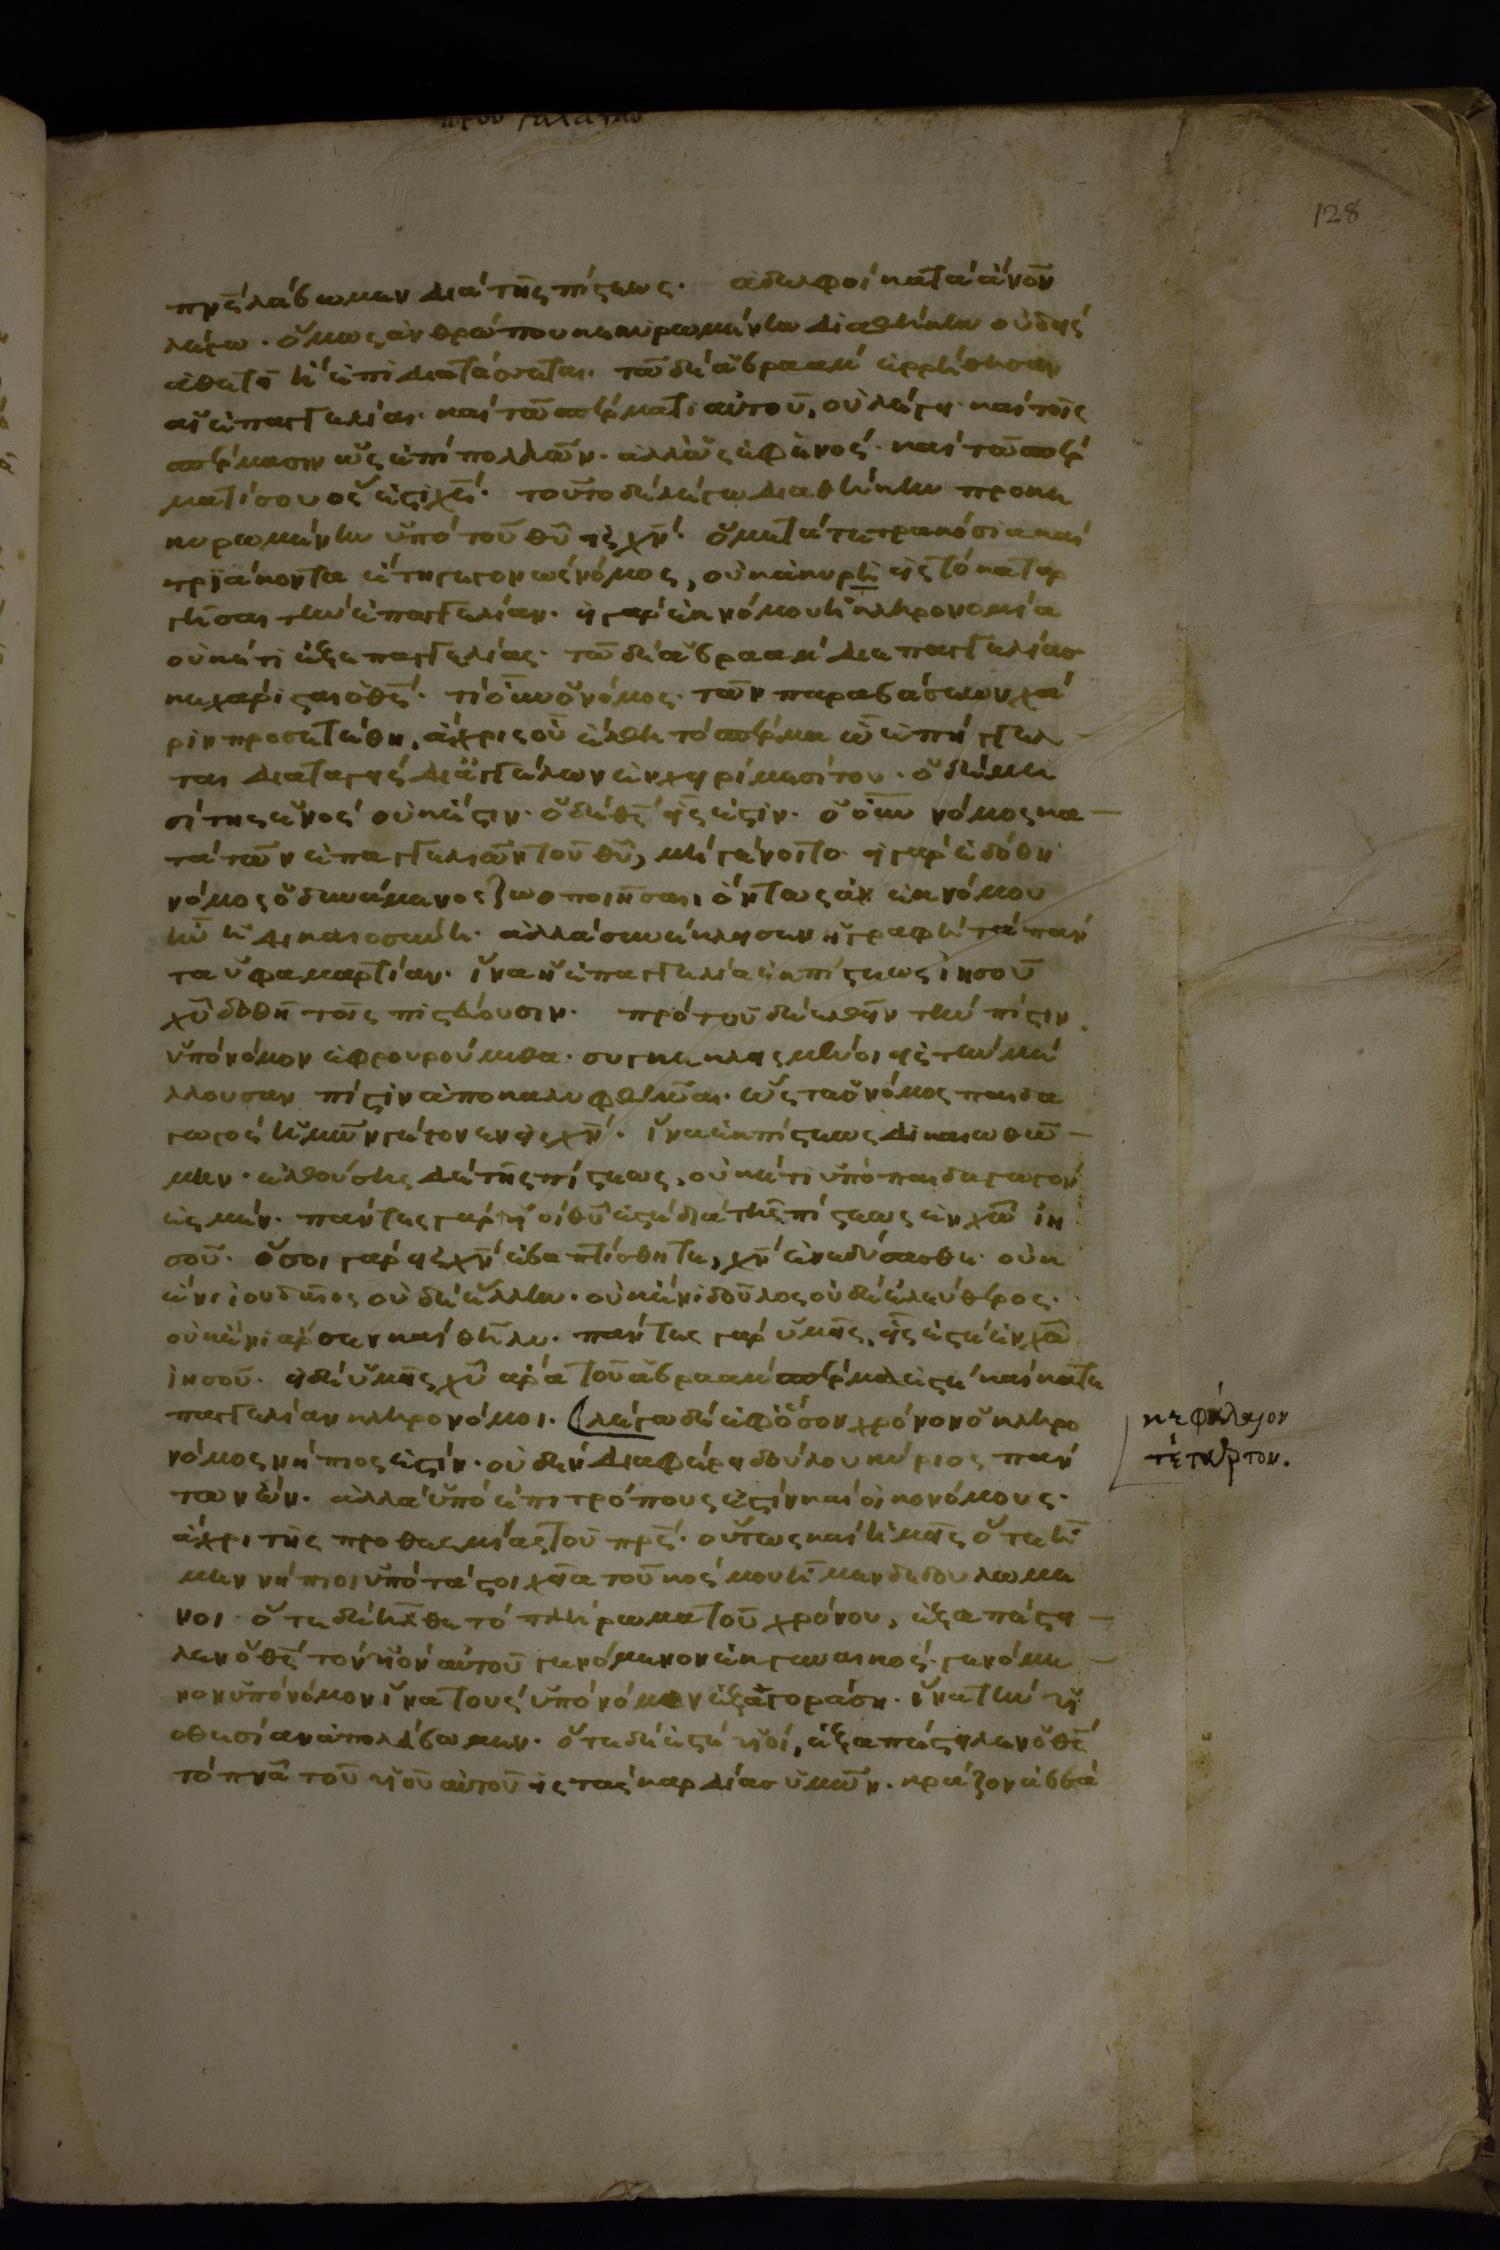 προσ γαλατασ
128
πνς λάβωμεν διὰ τῆς πίστεως. ἀδελφοὶ κατὰ ἄνον
λέγω. ὅμως ἀνθρώπου κεκυρωμένην διαθήκην οὐδεὶς
ἀθετεῖ ἢ ἐπιδιατάσσεται. τῶ δὲ ἀβραὰμ ἐρρήθησαν
αἱ ἐπαγγελίαι. καὶ τῶ σπέρματι αὐτοῦ, οὐ λέγει. καὶ τοῖς
σπέρμασιν ὡς ἐπὶ πολλῶν. ἀλλ' ὡς ἐφ' ἑνός. καὶ τῶ σπέρ
ματί σου ὅς ἐστι χς. τοῦτο δὲ λέγω διαθήκην προκε
κυρωμένην ὑπὸ τοῦ θυ εἰς χν. ὁ μετὰ τετρακόσια καὶ
τριάκοντα ἔτη γεγονὼς νόμος, οὐκ ἀκυροῖ εἰς τὸ καταρ
γῆσαι τὴν ἐπαγγελίαν. εἰ γὰρ ἐκ νόμου ἡ κληρονομία
οὐκέτι ἐξ ἐπαγγελίας. τῶ δὲ ἀβραὰμ δι' ἐπαγγελίας
κεχάρισται ὁ θς. τί οὖν ὁ νόμος. τῶν παραβάσεων χά
ριν προσετέθη, ἄχρις οὗ ἔλθη τὸ σπέρμα ὧ ἐπήγγελ
ται διαταγεὶς δι' ἀγγέλων ἐν χειρὶ μεσίτου. ὁ δὲ με
σίτης ἑνὸς οὐκ ἔστιν. ὁ δὲ θς εἷς ἐστιν. ὁ οὖν νόμος κα
τὰ τῶν ἐπαγγελιῶν τοῦ θυ, μὴ γένοιτο. εἰ γὰρ ἐδόθη
νόμος ὁ δυνάμενος ζωοποιῆσαι, ὄντως ἂν ἐκ νόμου
ἦν ἡ δικαιοσύνη. ἀλλὰ συνέκλεισεν ἡ γραφὴ τὰ πάν
τα ὑφ' ἁμαρτίαν. ἵνα ἡ ἐπαγγελία ἐκ πίστεως ἰησοῦ
χυ δοθῆ τοῖς πιστεύουσιν. πρὸ τοῦ δὲ ἐλθεῖν τὴν πίστιν
ὑπὸ νόμον ἐφρουρούμεθα. συγκεκλεισμένοι εἰς τὴν μέ
λλουσαν πίστιν ἀποκαλυφθῆναι. ὥστε ὁ νόμος παιδα
γωγὸς ἡμῶν γέγονεν εἰς χν. ἵνα ἐκ πίστεως δικαιωθῶ
μεν. ἐλθούσης δὲ τῆς πίστεως, οὐκέτι ὑπὸ παιδαγωγόν
ἐσμεν. πάντες γὰρ υἱοὶ θυ ἐστὲ διὰ τῆς πίστεως ἐν χω ἰη
σοῦ. ὅσοι γὰρ εἰς χν ἐβαπτίσθητε, χν ἐνεδύσασθε. οὐκ
ἔνι ἰουδαῖος οὐδὲ ἕλλην. οὐκ ἔνι δοῦλος οὐδὲ ἐλεύθερος.
οὐκ ἔνι ἄρσεν καὶ θῆλυ. πάντες γὰρ ὑμεῖς, εἷς ἐστὲ ἐν χω
ἰησοῦ. εἰ δὲ ὑμεῖς χυ ἄρα τοῦ ἀβραὰμ σπέρμα ἐστὲ καὶ κατ' ἐ
παγγελίαν κληρονόμοι. λέγω δὲ ἐφ' ὅσον χρόνον ὁ κληρο
νόμος νήπιός ἐστιν. οὐδὲν διαφέρει δούλου κύριος πάν
των ὤν. ἀλλὰ ὑπὸ ἐπιτρόπους ἐστὶν καὶ οἰκονόμους.
ἄχρι τῆς προθεσμίας τοῦ πρς. οὕτως καὶ ἡμεῖς ὅτε ἦ
μεν νήπιοι ὑπὸ τὰ στοιχεῖα τοῦ κόσμου ἦμεν δεδουλωμέ
νοι. ὅτε δὲ ἦλθε τὸ πλήρωμα τοῦ χρόνου, ἐξαπέστει
λεν ὁ θς τὸν υἱὸν αὐτοῦ γενόμενον ἐκ γυναικός. γενόμε
νον ὑπὸ νόμον ἵνα τοὺς ὑπὸ νόμον ἐξαγοράση. ἵνα τὴν υἱ
οθεσίαν ἀπολάβωμεν. ὅτε δέ ἐστε υἱοί, ἐξαπέστειλεν ὁ θς
τὸ πνα τοῦ υἱοῦ αὐτοῦ εἰς τὰς καρδίας ὑμῶν. κράζον ἀββᾶ
κεφάλαιον
τέταρτον.